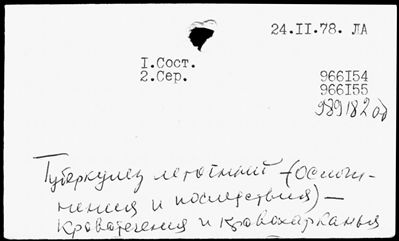 24.II.78. ЛА
I.Сост.
2.Сер.
966I54
966I55
989182 од
Туберкулез легочный – (ослож-
нения и последствия) –
Кровотечения и кровохарканья